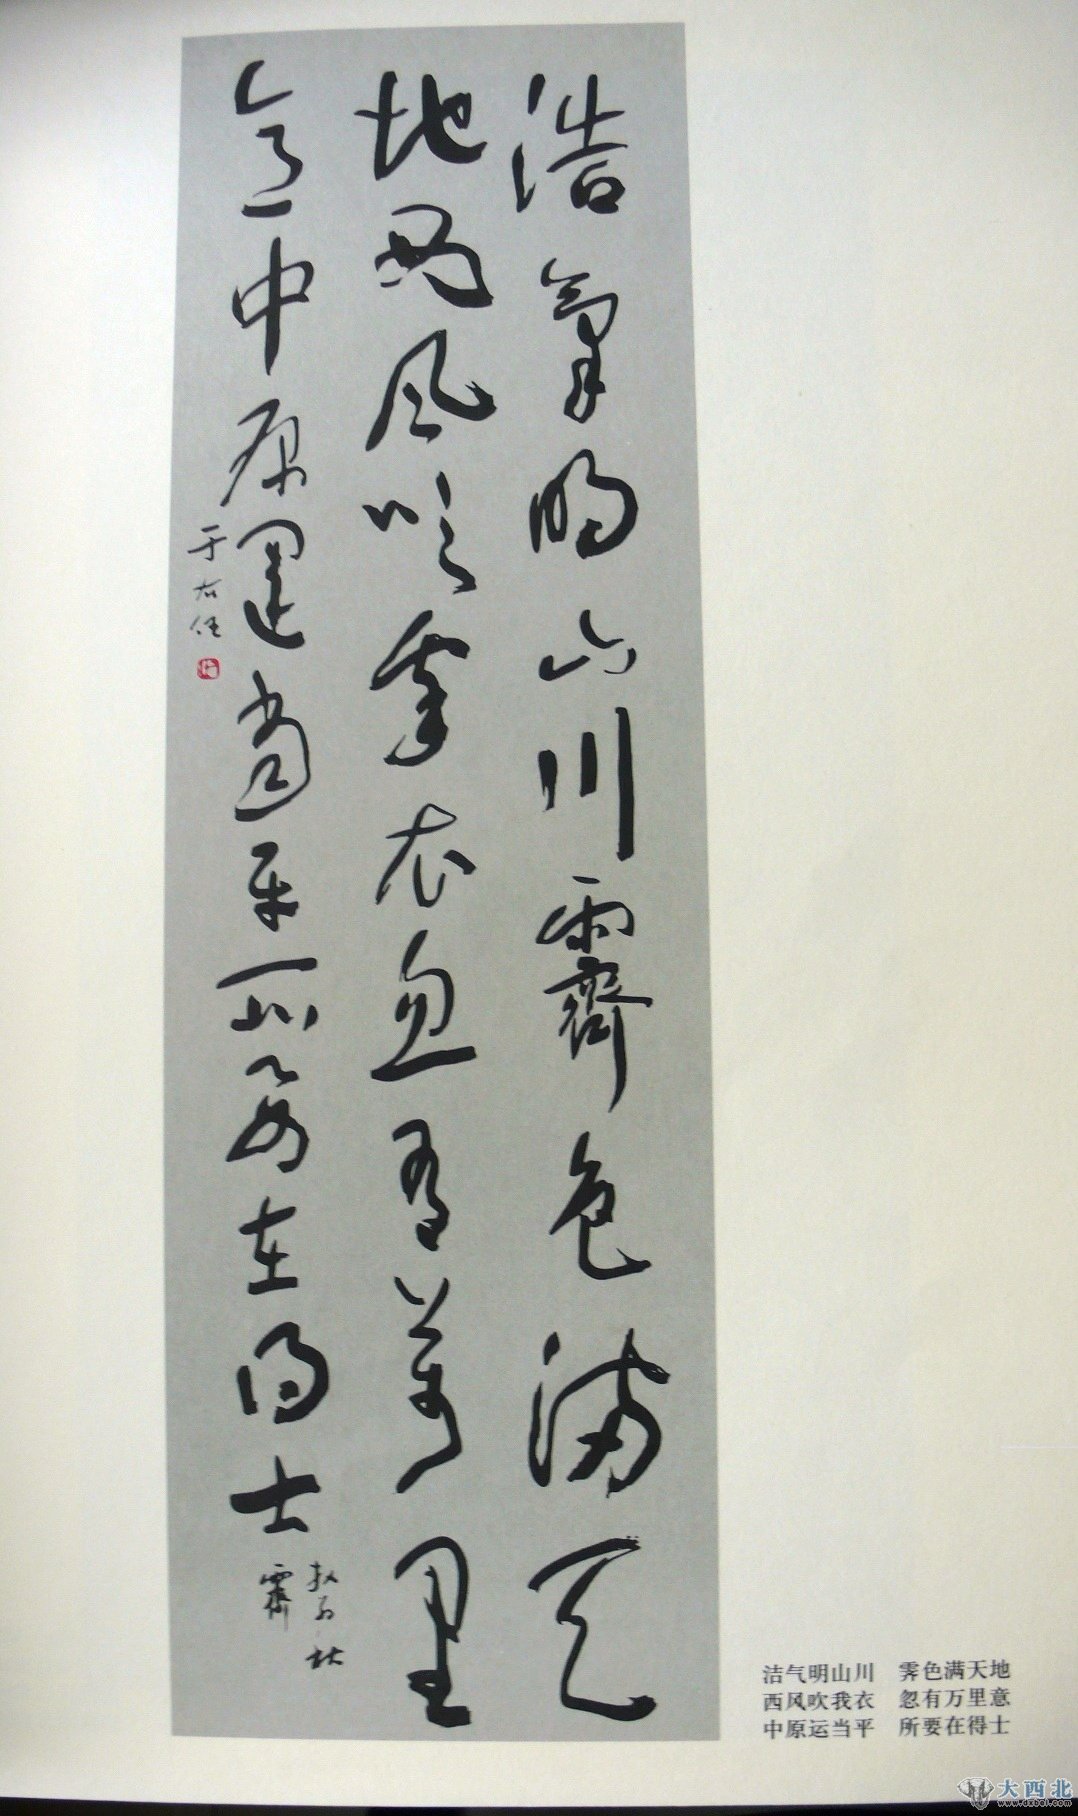 浩氣明山川霽色滿天
地西風吹我衣忽有萬里
意中原運當平所要在得士
秋
霽
于右任
洁气明山川　霁色满天地
西风吹我衣　忽有万里意
中原运当平　所要在得士
大西北
www.dxbei.com